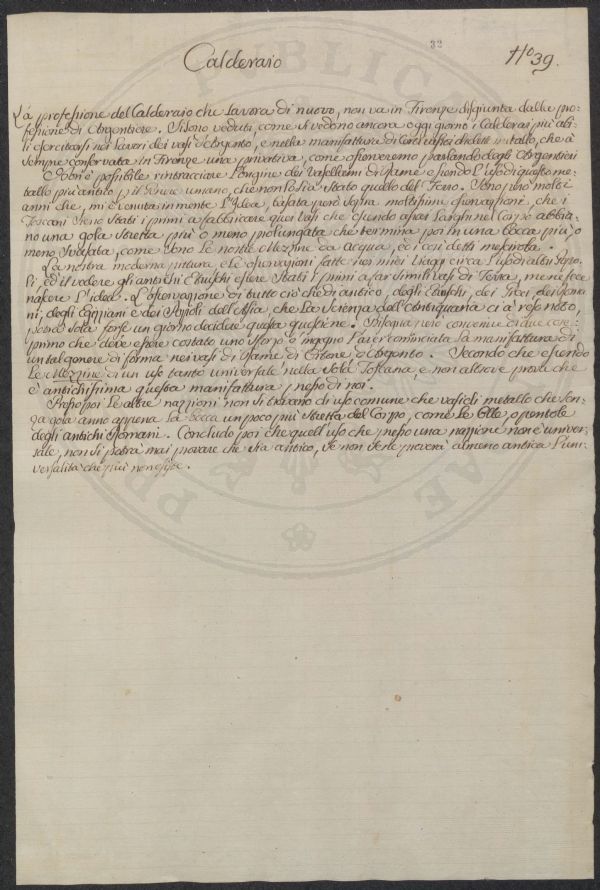 32
Nº 39.
Calderaio
La professione del Calderaio che lavora di nuovo, non va in Firenze disgiunta dalla pro-
fessione di Argentiere. Si sono veduti, come si vedono ancora oggi giorno i Calderai più abi-
li esercitarsi nei lavori dei vasi d'Argento, e nella manifattura di metallo, che è
sempre conservata in Firenze una privativa, come osserveremo parlando degli Argentieri
possibile rintracciare l'origine dei Vasellami di Rame essendo l'uso di questo me-
tallo più antico p il genere umano, che non sia stato quello del Ferro. Sono però molti
anni che, mi è venuta in mente l'Idea, basata però sopra moltissime osservazioni, che i
Toscani sieno stati i primi a fabbricare quei vasi che essendo assai larghi nel Corpo abbia-
no una gola stretta più o meno prolungata che termina poi in una bocca più, o
meno svasata, come sono le nostre Mezzine da acqua, e i così detti
La nostra moderna pittura e le osservazioni fatte nei miei viaggi circa l'uso di altri Popo-
li, ed il vedere gli antichi Etruschi essere stati i primi a far simili vasi di Terra, me ne fece
nascere l'idea. L'osservazione di tutto ciò che di antico, degli Etruschi, dei Greci, dei Roma-
ni, degli Egiziani e dei Popoli dell'Asia, che la scienza dell'Antiquaria ci à reso noto,
potrà sola forse un giorno decidere questa questione. Bisogna però convenire di due cose:
primo che deve essere costato uno sforzo d'ingegno l'aver cominciata la manifattura di
un tal genere di forma nei vasi di Rame di Ottone, o Argento. Secondo che essendo
le Mezzine di un uso tanto universale nella sola Toscana, e non altrove prova che
è antichissima questa manifattura presso di noi.
Presso poi le altre nazzioni non si trovano di uso comune che vasi di metallo che sen-
za gola anno appena la bocca un poco più stretta del Corpo, come le Olle o pentole
degli antichi Romani. Concludo poi che quell'uso che presso una nazzione non è univer-
sale, non si potrà mai provare che sia antico, se non se ne proverà almeno antica l'uni-
versalità che più non esiste.